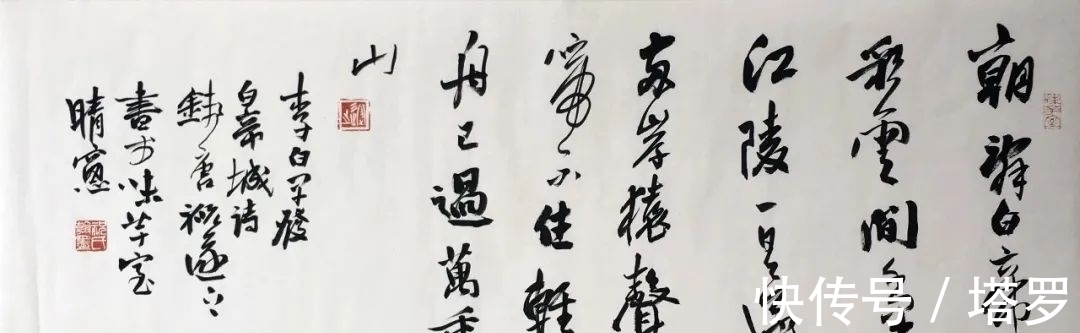 朝辭白帝
彩雲間千
江陵一日還
兩岸猿聲
啼不住輕
舟已過萬重
山
李白早發
白帝城诗
錢唐祝遂之
書於味室
晴窗
快传号 / 塔罗